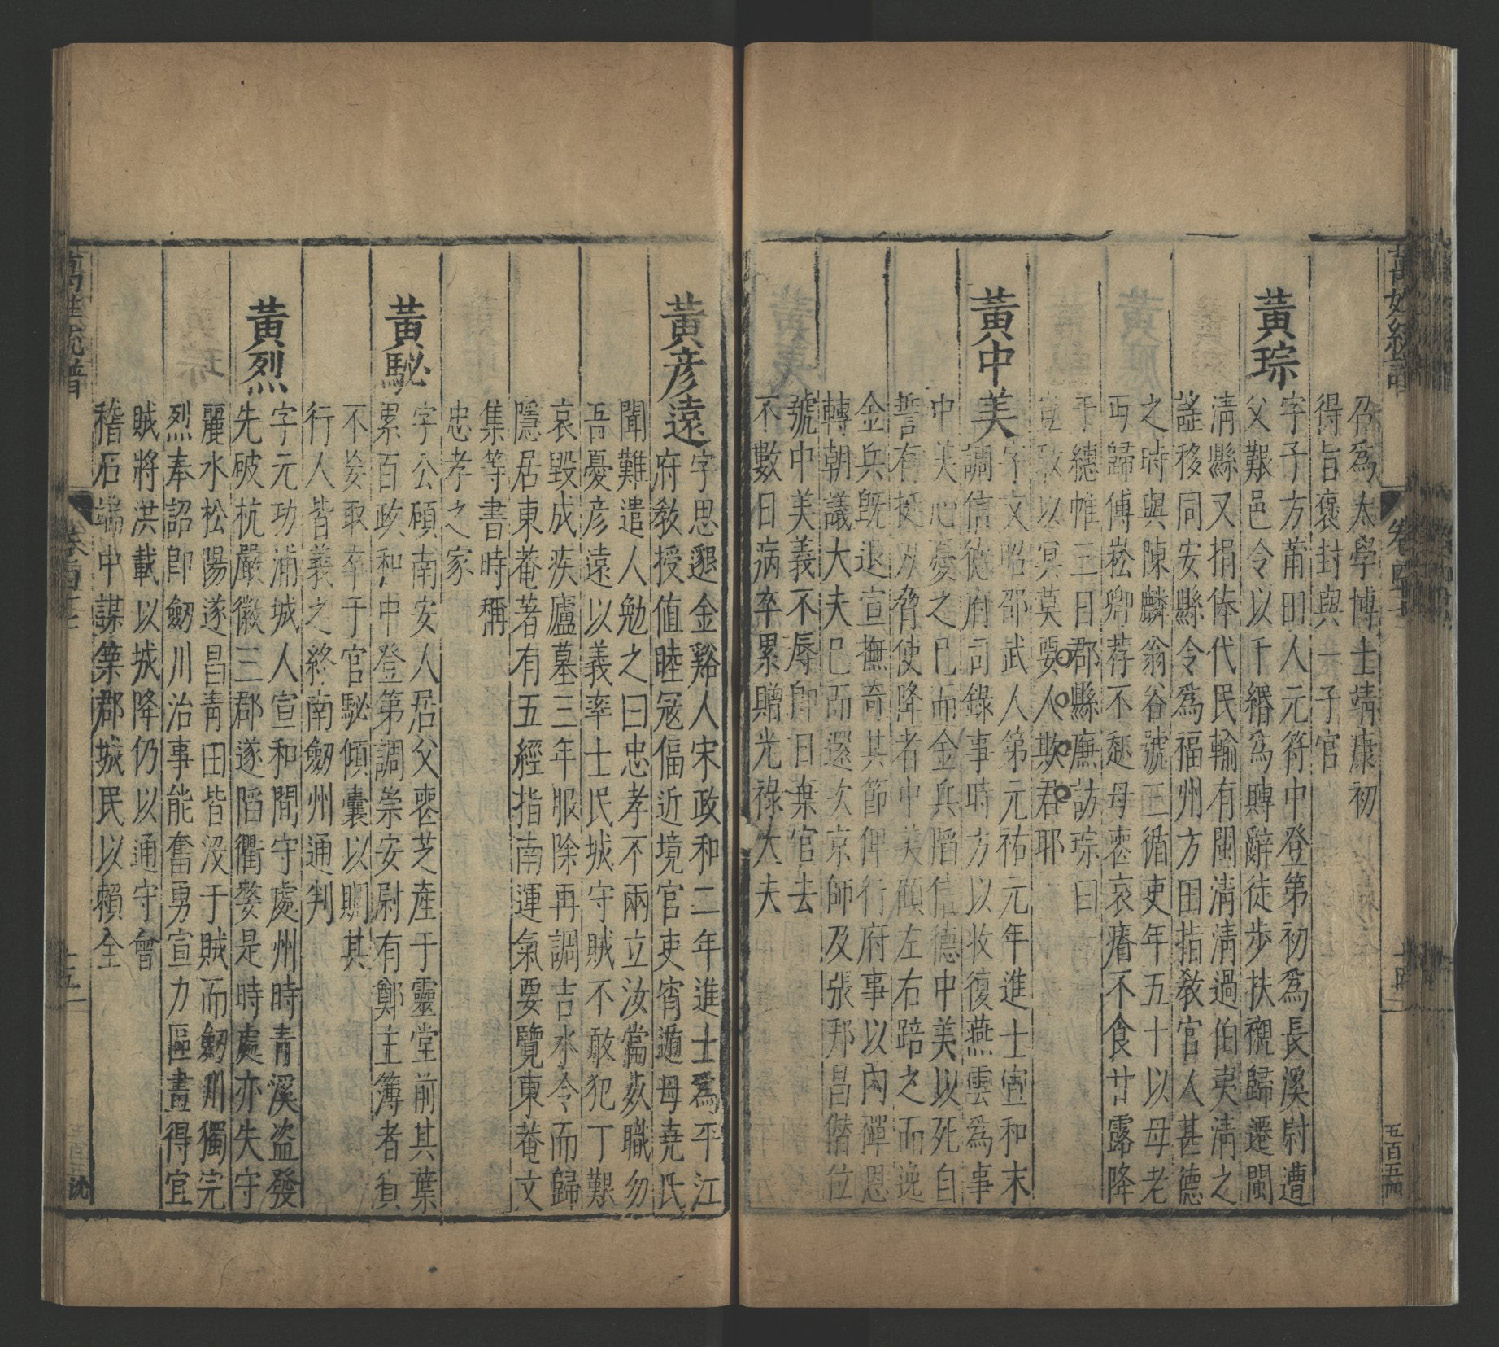 萬姓統譜
卷四十七
十四
五百五四
召爲太學博士靖康初
得旨褒封與一子官
黃琮
字子方莆田人元符中登第初爲長溪尉遭
父艱邑令以千緡爲賻辭徒步扶櫬歸遷閩
清縣又捐俸代民輸有閩清清過伯夷清之
謠移同安縣令爲福州方田指教官人甚德
之時與陳麟翁谷號三循吏年五十以母老
丐歸傅崧卿荐不起母喪哀瘠不食甘露降
于繐帷三日郡縣廉訪琮曰
豈敢以冥莫要人欺君耶
黃中美
字文昭邵武人第元祐元年進士宣和末
調信德府司錄事時方以收復燕雲爲事
中美心憂之已而金兵陷信德中美以死自
誓有挺刃脅使降者中美顧左右踣之而逸
金兵旣退宣撫奇其節俾行府事以內禪恩
轉朝議大夫已而還次京師及張邦昌僭位
號中美義不辱卽日棄官去
不數日病卒累贈光祿大夫
黃彦遠
字思邈金谿人宋政和二年進士爲平江
府敎授值睦冦偪近境官吏宵遁母堯氏
聞難遣人勉之曰忠孝不兩立汝當效職勿
吾憂彦遠以義率士民城守賊不敢犯丁艱
哀毀成疾廬墓三年服除再調吉水令而歸
隱居東菴著有五經指南運氣要覽東菴文
集等書時稱
忠孝之家
黃駜
字公碩南安人居父喪芝產于靈堂前其葉
累百政和中登第調崇安尉有鄭主簿者貧
不能取卒于官駜傾囊以賙其
行人皆義之終南劒州通判
黃烈
字元功浦城人宣和間守處州時青溪盜發
先破杭嚴徽三郡遂陷衢婺是時處亦失守
麗水松陽遂昌青田皆沒于賊而劒川獨完
烈奉詔卽劒川治事能奮勇宣力區畫得宜
賊將洪載以城降仍以通守會
稽石端中謀築郡城民以賴全
萬姓統譜
十五
沈